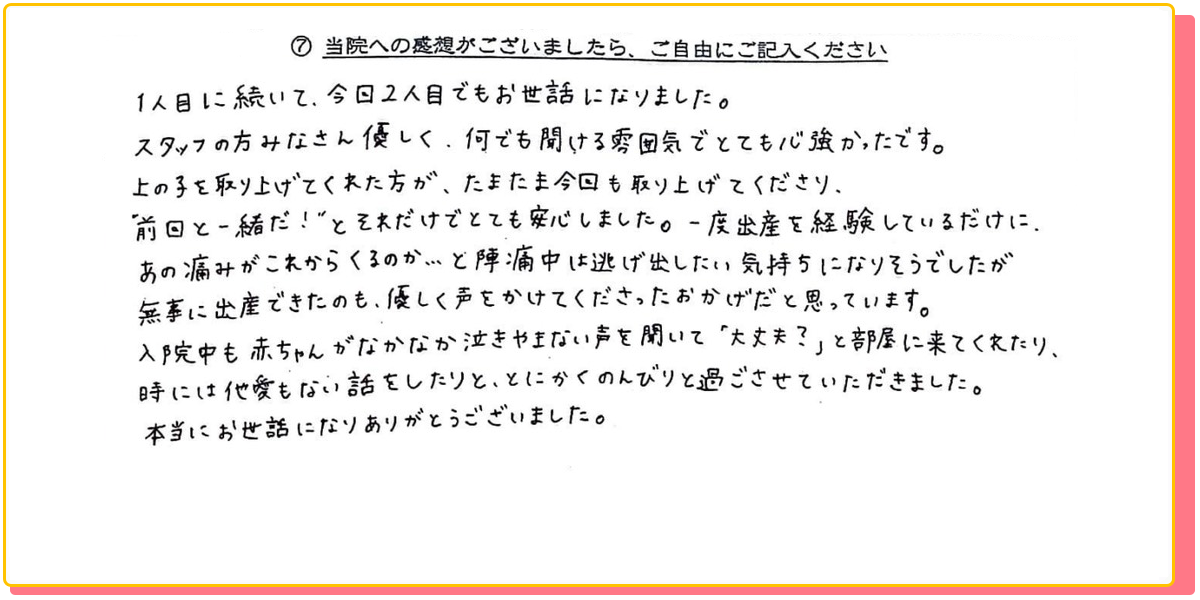 ⑦ 当院への感想がございましたら、ご自由にご記入ください
1人目に続いて、今回2人目でもお世話になりました。
スタッフの方みなさん優しく、何でも聞ける雰囲気でとても心強かったです。
上の子を取り上げてくれた方が、たまたま今回も取り上げてくださり、
"前回と一緒だ!"とそれだけでとても安心しました。一度出産を経験しているだけに、
あの痛みがこれからくるのか…と陣痛中は逃げ出したい気持ちになりそうでしたが
無事に出産できたのも、優しく声をかけてくださったおかげだと思っています。
入院中も赤ちゃんがなかなか泣きやまない声を聞いて「大丈夫?」と部屋に来てくれたり、
時には他愛もない話をしたりと、とにかくのんびりと過ごさせていただきました。
本当にお世話になりありがとうございました。